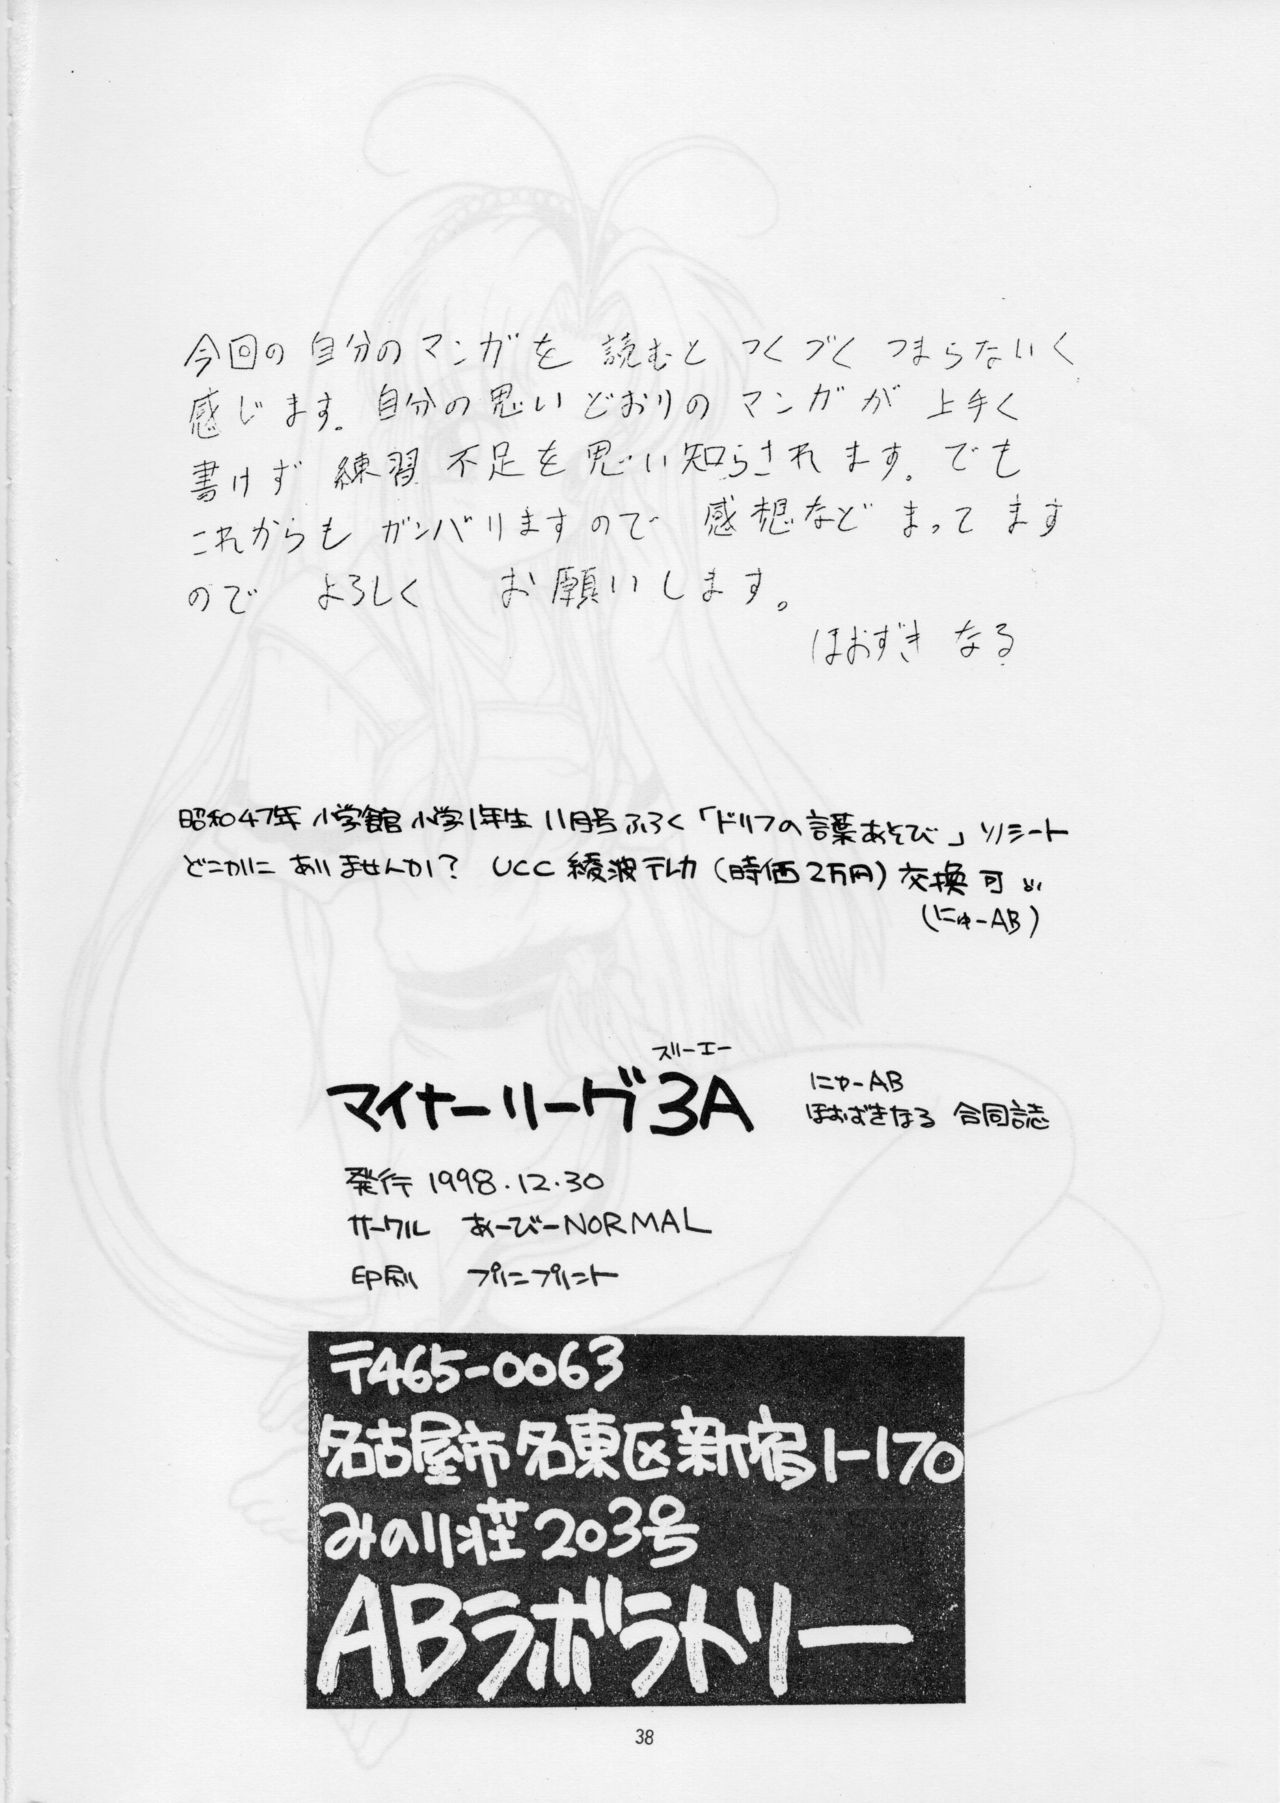 今回の自分のマンガを 読むと つくづく つまらないく
感じます。自分の思いどおりの マンガが 上手く
書けず 練習 不足を思い知らされます。でも
これからも ガンバリますので 感想など まってます
ので よろしく お願いします。
ほおずき なる
昭和47年 小学館 小学1年生 11月号ふろく「ドリフの言葉あそび」ソノシート
どこかに ありませんか? UCC 綾波テレカ (時価2万円) 交換 可
(にゅーAB)
スリーエー
マイナーリーグ3A
にゅーAB
ほおずきなる 合同誌
発行 1998.12.30
サークル あーびーNORMAL
印刷 プリニプリント
〒465-0063
名古屋市名東区新宿1-170
みのり荘203号
ABラボラトリー
38